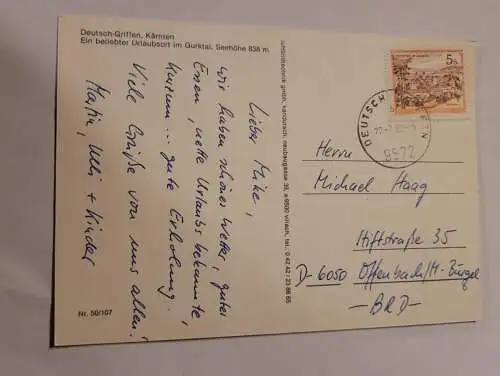 Deutsch-Griffen, Kärnten
Ein beliebter Urlaubsort im Gurktal, Seehöhe 838 m.
Lieber Mike,
wir haben schönes Wetter, gutes
Essen, nette Urlaubsbekannte,
kurzum... gute Erholung.
Viele Grüße von uns allen!
Martin, Ulli + Kinder
Nr. 50/107
5 S
DEUTSCH
9572
Herrn
Michael Haag
Stiftstraße 35
D-6050 Offenbach/M-Bürgel
-BRD-